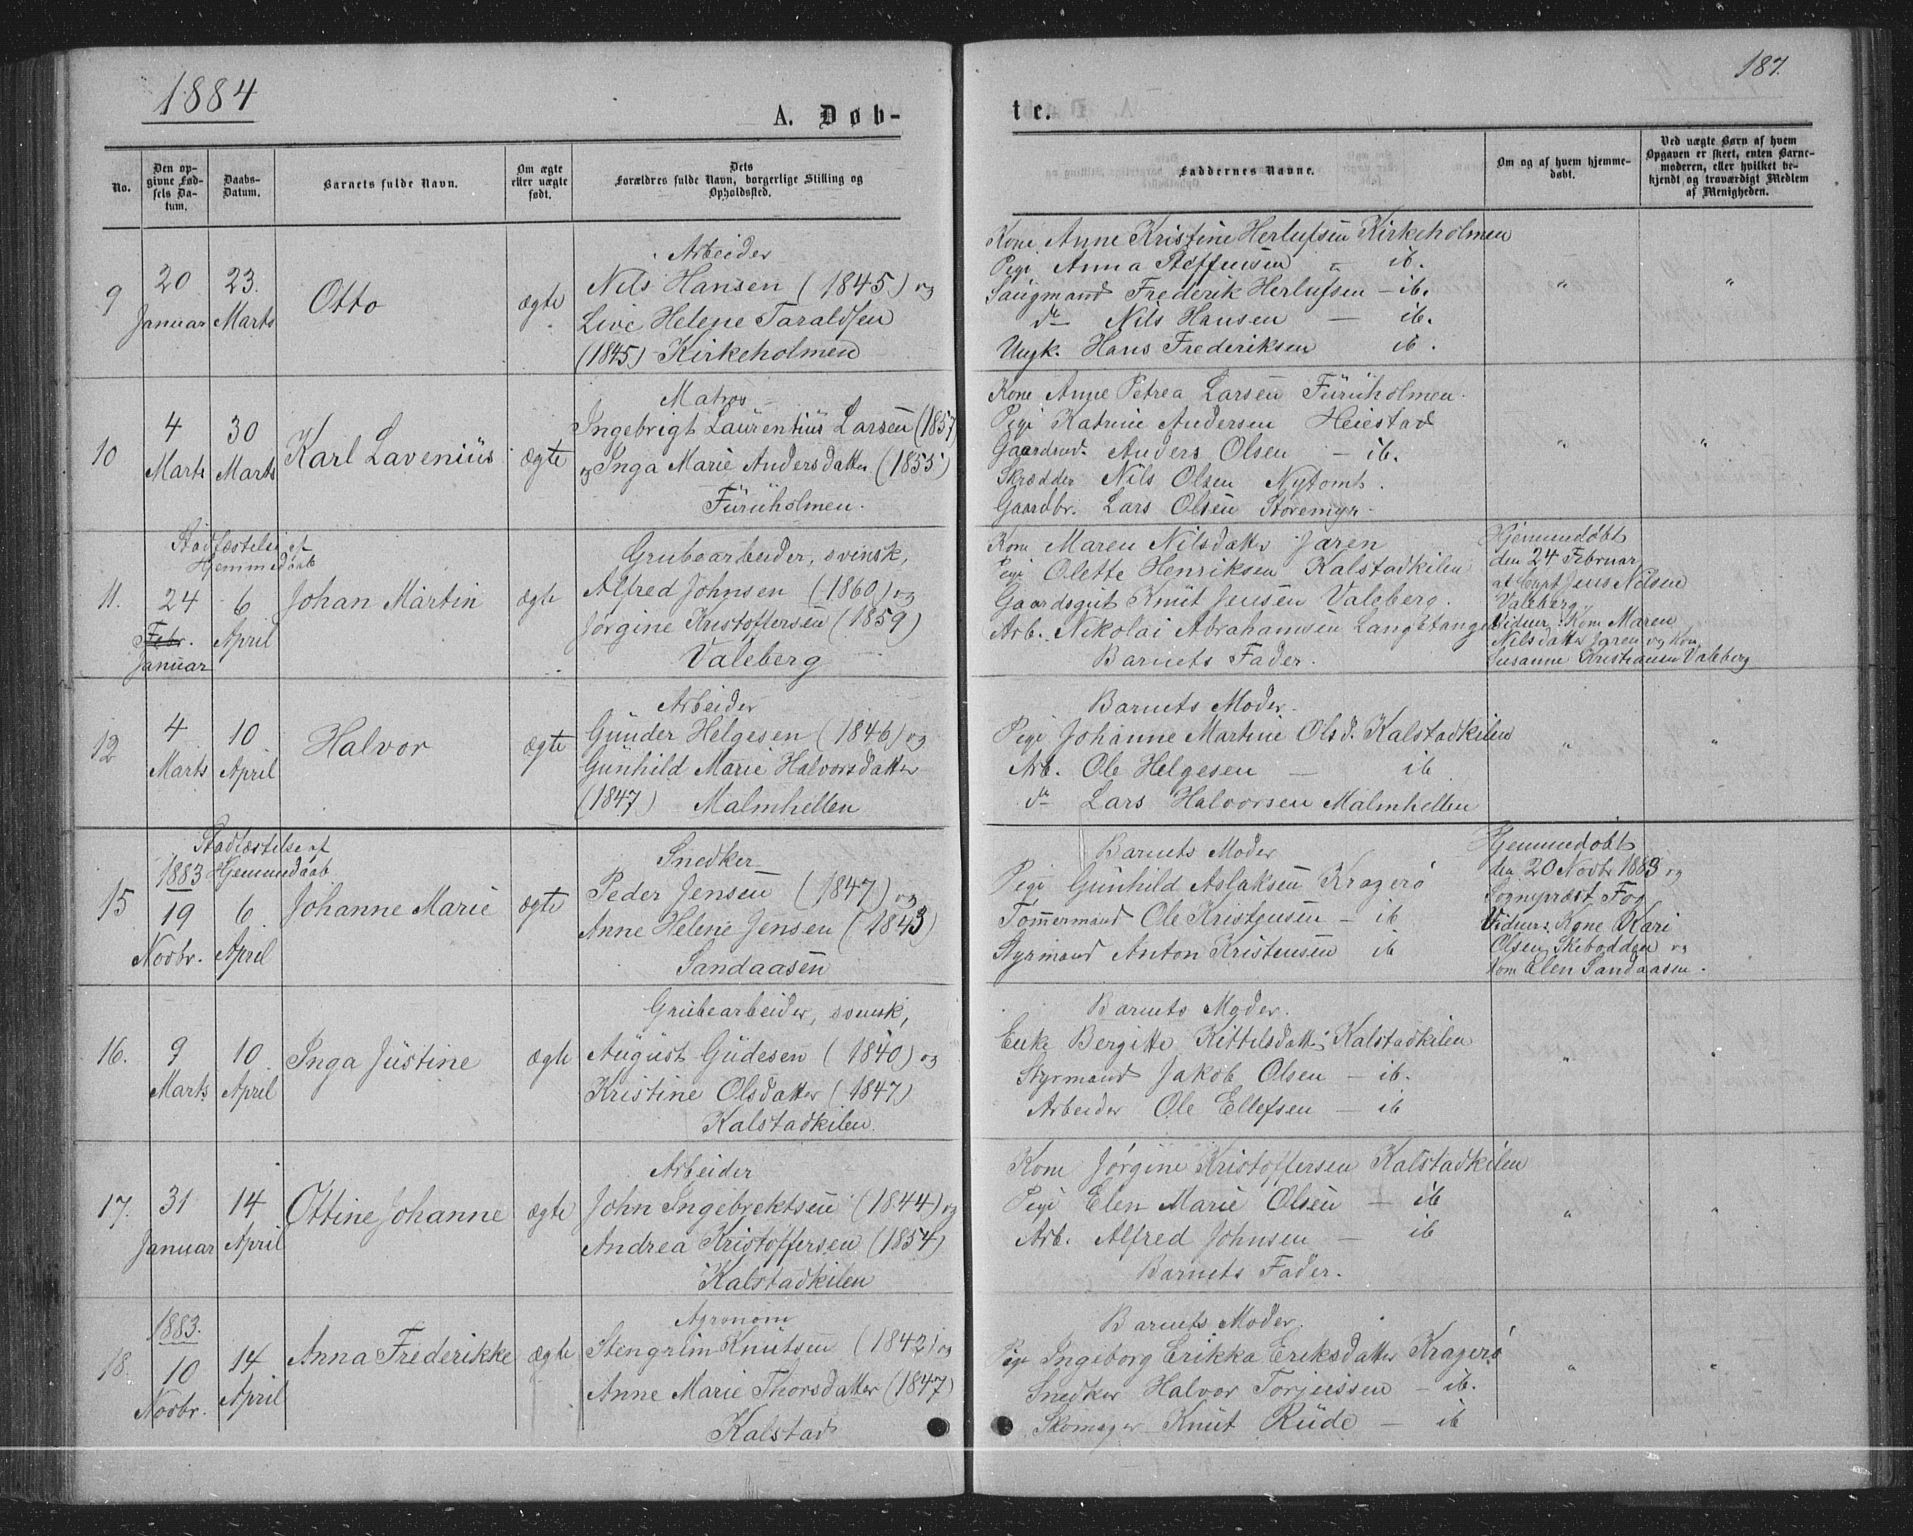 1884
187.
A. Døb-
te.
No.
Den opgivne Fødsels Datum.
Daabs-Datum.
Barnets fulde Navn.
Om ægte eller uægte født.
Dets Forældres fulde Navn, borgerlige Stilling og Opholdssted.
Faddernes Navne.
Om og af hvem hjemmedøbt.
Ved uægte Børn af hvem Opgaven er skeet, enten Barnemoderen, eller hvilket bekjendt og troværdigt Medlem af Menigheden.
9
20 Januar
23. Marts
Otto
ægte
Arbeider
Nils Hansen (1845) og
Live Helene Taraldsen
(1845) Kirkeholmen
Kone Anne Kristine Herlufsen Kirkeholmen
Pige Anna Steffensen " ib.
Saugmand Frederik Herlufsen - ib.
do Nils Hansen - ib.
Ungk. Hans Frederiksen ib.
"
"
10
4 Marts
30 Marts
Karl Lavenius
ægte
Matros
Ingebrigt Laurentius Larsen (1857
og Inga Marie Andersdatter (1855)
Furuholmen.
Kone Anne Petrea Larsen Furuholmen.
Pige Katrine Andersen Heiestad
Gaardmd. Anders Olsen - ib.
Skrædder Nils Olsen Nytomt.
Gaardbr. Lars Olsen Storemyr.
"
"
Stadfæstelse af
Hjemmedaab
11.
24 Febr. Januar
6 April
Johan Martin
ægte
Grubearbeider, svensk,
Alfred Johnsen (1860) og
Jørgine Kristoffersen (1859)
Valeberg
Kone Maren Nilsdatter Jaren
Pige Olette Henriksen Kalstadkilen
Gaardsgut Knut Jensen Valeberg.
Arb. Nikolai Abrahamsen Langetangen
Barnets Fader.
Hjemmedøbt
den 24 Februar
af Jens Nilsen
Valeberg,
Vidner: Kone Maren
Nilsdatter Jaren og Kone
Susanne Kristiansen Valeberg
12
4 Marts
10 April
Halvor
ægte
Arbeider
Gunder Helgesen (1846) og
Gunhild Marie Halvorsdatter
(1847) Malmhelten
Barnets Moder.
Pige Johanne Martine Olsd. Kalstadkilen
Arb. Ole Helgesen - ib
do Lars Halvorsen Malmhelten
"
"
Stadfæstelse af
1883 Hjemmedaab
15
19 Novbr.
6 April
Johanne Marie
ægte
Snedker
Peder Jensen (1847) og
Anne Helene Jensen (1843)
Sandaasen
Barnets Moder
Pige Gunhild Aslaksen Kragerø
Tømmermand Ole Kristensen - ib
Styrmand Anton Kristensen ib
Hjemmedøbt
den 20 Novbr 1883 og
Sognepræst Fog
Vidner: Kone Kari
Olsen Skebodden og
Kone Elen Sandaasen.
16.
9 Marts
10 April
Inga Justine
ægte
Grubearbeider, svensk,
August Gudesen (1840) og
Kristine Olsdatter (1847)
Kalstadkilen.
Barnets Moder.
Enke Bergitte Kittelsdatter Kalstadkilen
Styrmand Jakob Olsen - ib.
Arbeider Ole Ellefsen - ib
"
"
17.
31 Januar
14 April
Ottine Johanne
ægte
Arbeider
John Ingebrektsen (1844) og
Andrea Kristoffersen (1854)
Kalstadkilen
Kone Jørgine Kristoffersen Kalstadkilen
Pige Elen Marie Olsen - ib
Arb. Alfred Johnsen - ib
Barnets Fader.
"
"
18.
1883.
10 Novbr.
14 April
Anna Frederikke
ægte
Agronom
Stengrim Knutsen (1842) og
Anne Marie Thorsdatter (1847)
Kalstad
Barnets Moder.
Pige Ingeborg Erikka Eriksdatter Kragerø
Snedker Halvor Torjussen - ib.
Skomager Knut Rude - ib
"
"